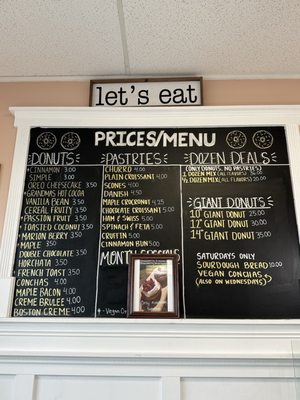 let's eat
PRICES/MENU
DONUTS
CINNAMON 3.00
SIMPLE 3.00
OREO CHEESECAKE 3.50
GRANDMAS HOT COCOA
VANILLA BEAN 3.50
CEREAL FRUITY 3.50
PASSION FRUIT 3.50
TOASTED COCONUT 3.50
MARION BERRY 3.50
MAPLE 3.50
DOUBLE CHOCOLATE 3.50
HORCHATA 3.50
FRENCH TOAST 3.50
CONCHAS 4.00
MAPLE BACON 4.00
CREME BRULEE 4.00
BOSTON CREME 4.00
PASTRIES
CHURRO 4.00
PLAIN CROISSANT 4.00
SCONES 4.00
DANISH 4.50
MAPLE CROCRONUT 4.25
CHOCOLATE CROISSANT 5.00
HAM & SWISS 5.00
SPINACH & FETA 5.00
CRUFFIN 5.00
CINNAMON BUN 5.00
MONTH SPECIALS
- Vegan
DOZEN DEALS
(ONLY DONUTS, NO PASTRIES)
1 DOZEN MIX (ALL FLAVORS)
1/2 DOZEN MIX (ALL FLAVORS) 20.00
GIANT DONUTS
10" GIANT DONUT 25.00
12" GIANT DONUT 30.00
14" GIANT DONUT 35.00
SATURDAYS ONLY
SOURDOUGH BREAD 10.00
VEGAN CONCHAS
(ALSO ON WEDNESDAYS)